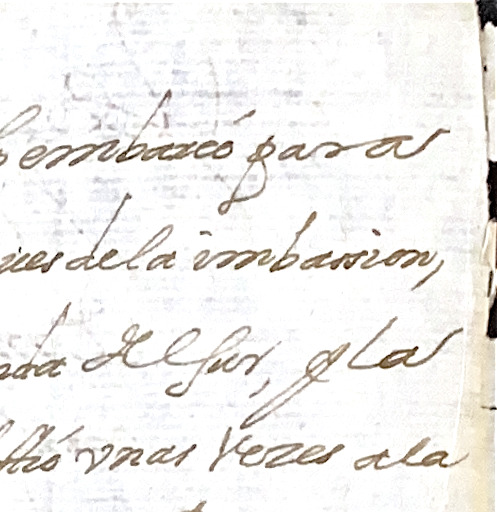 embarcó para
ues de la imbassion,
da del Sur, q la
tió vnas vezes a la